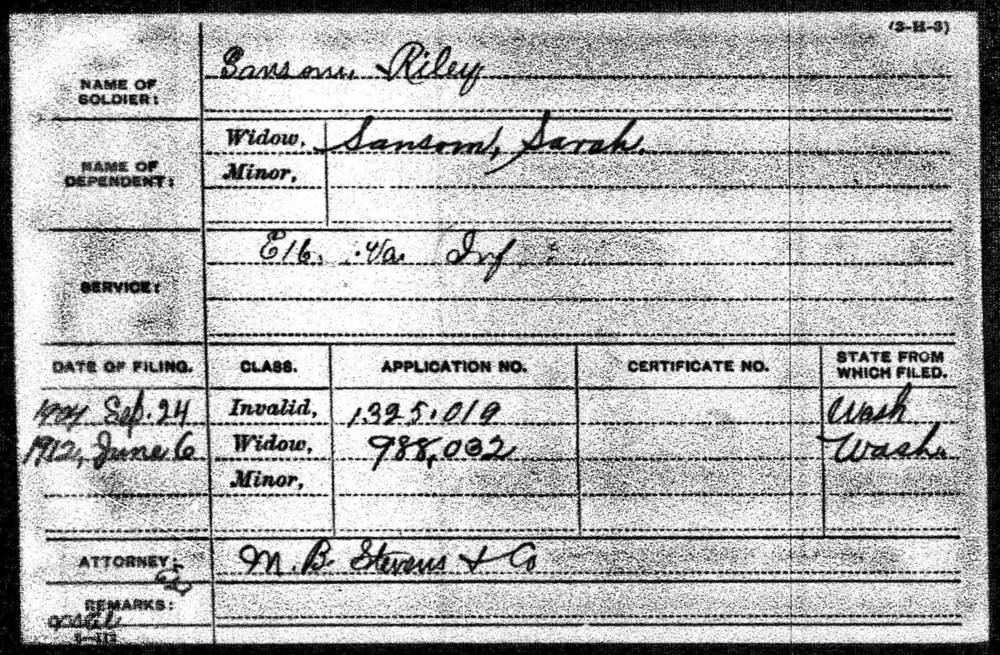 (3-H-3)
NAME OF SOLDIER: Sansom, Riley
NAME OF DEPENDENT: Widow, Sansom, Sarah.
Minor,
SERVICE: E 16. Va. Inf
DATE OF FILING. CLASS. APPLICATION NO. CERTIFICATE NO. STATE FROM WHICH FILED.
1904 Sep. 24 Invalid, 1,325,019 Wash
1912, June 6 Widow, 988,032 Wash.
Minor,
ATTORNEY: M. B. Stevens & Co
REMARKS: